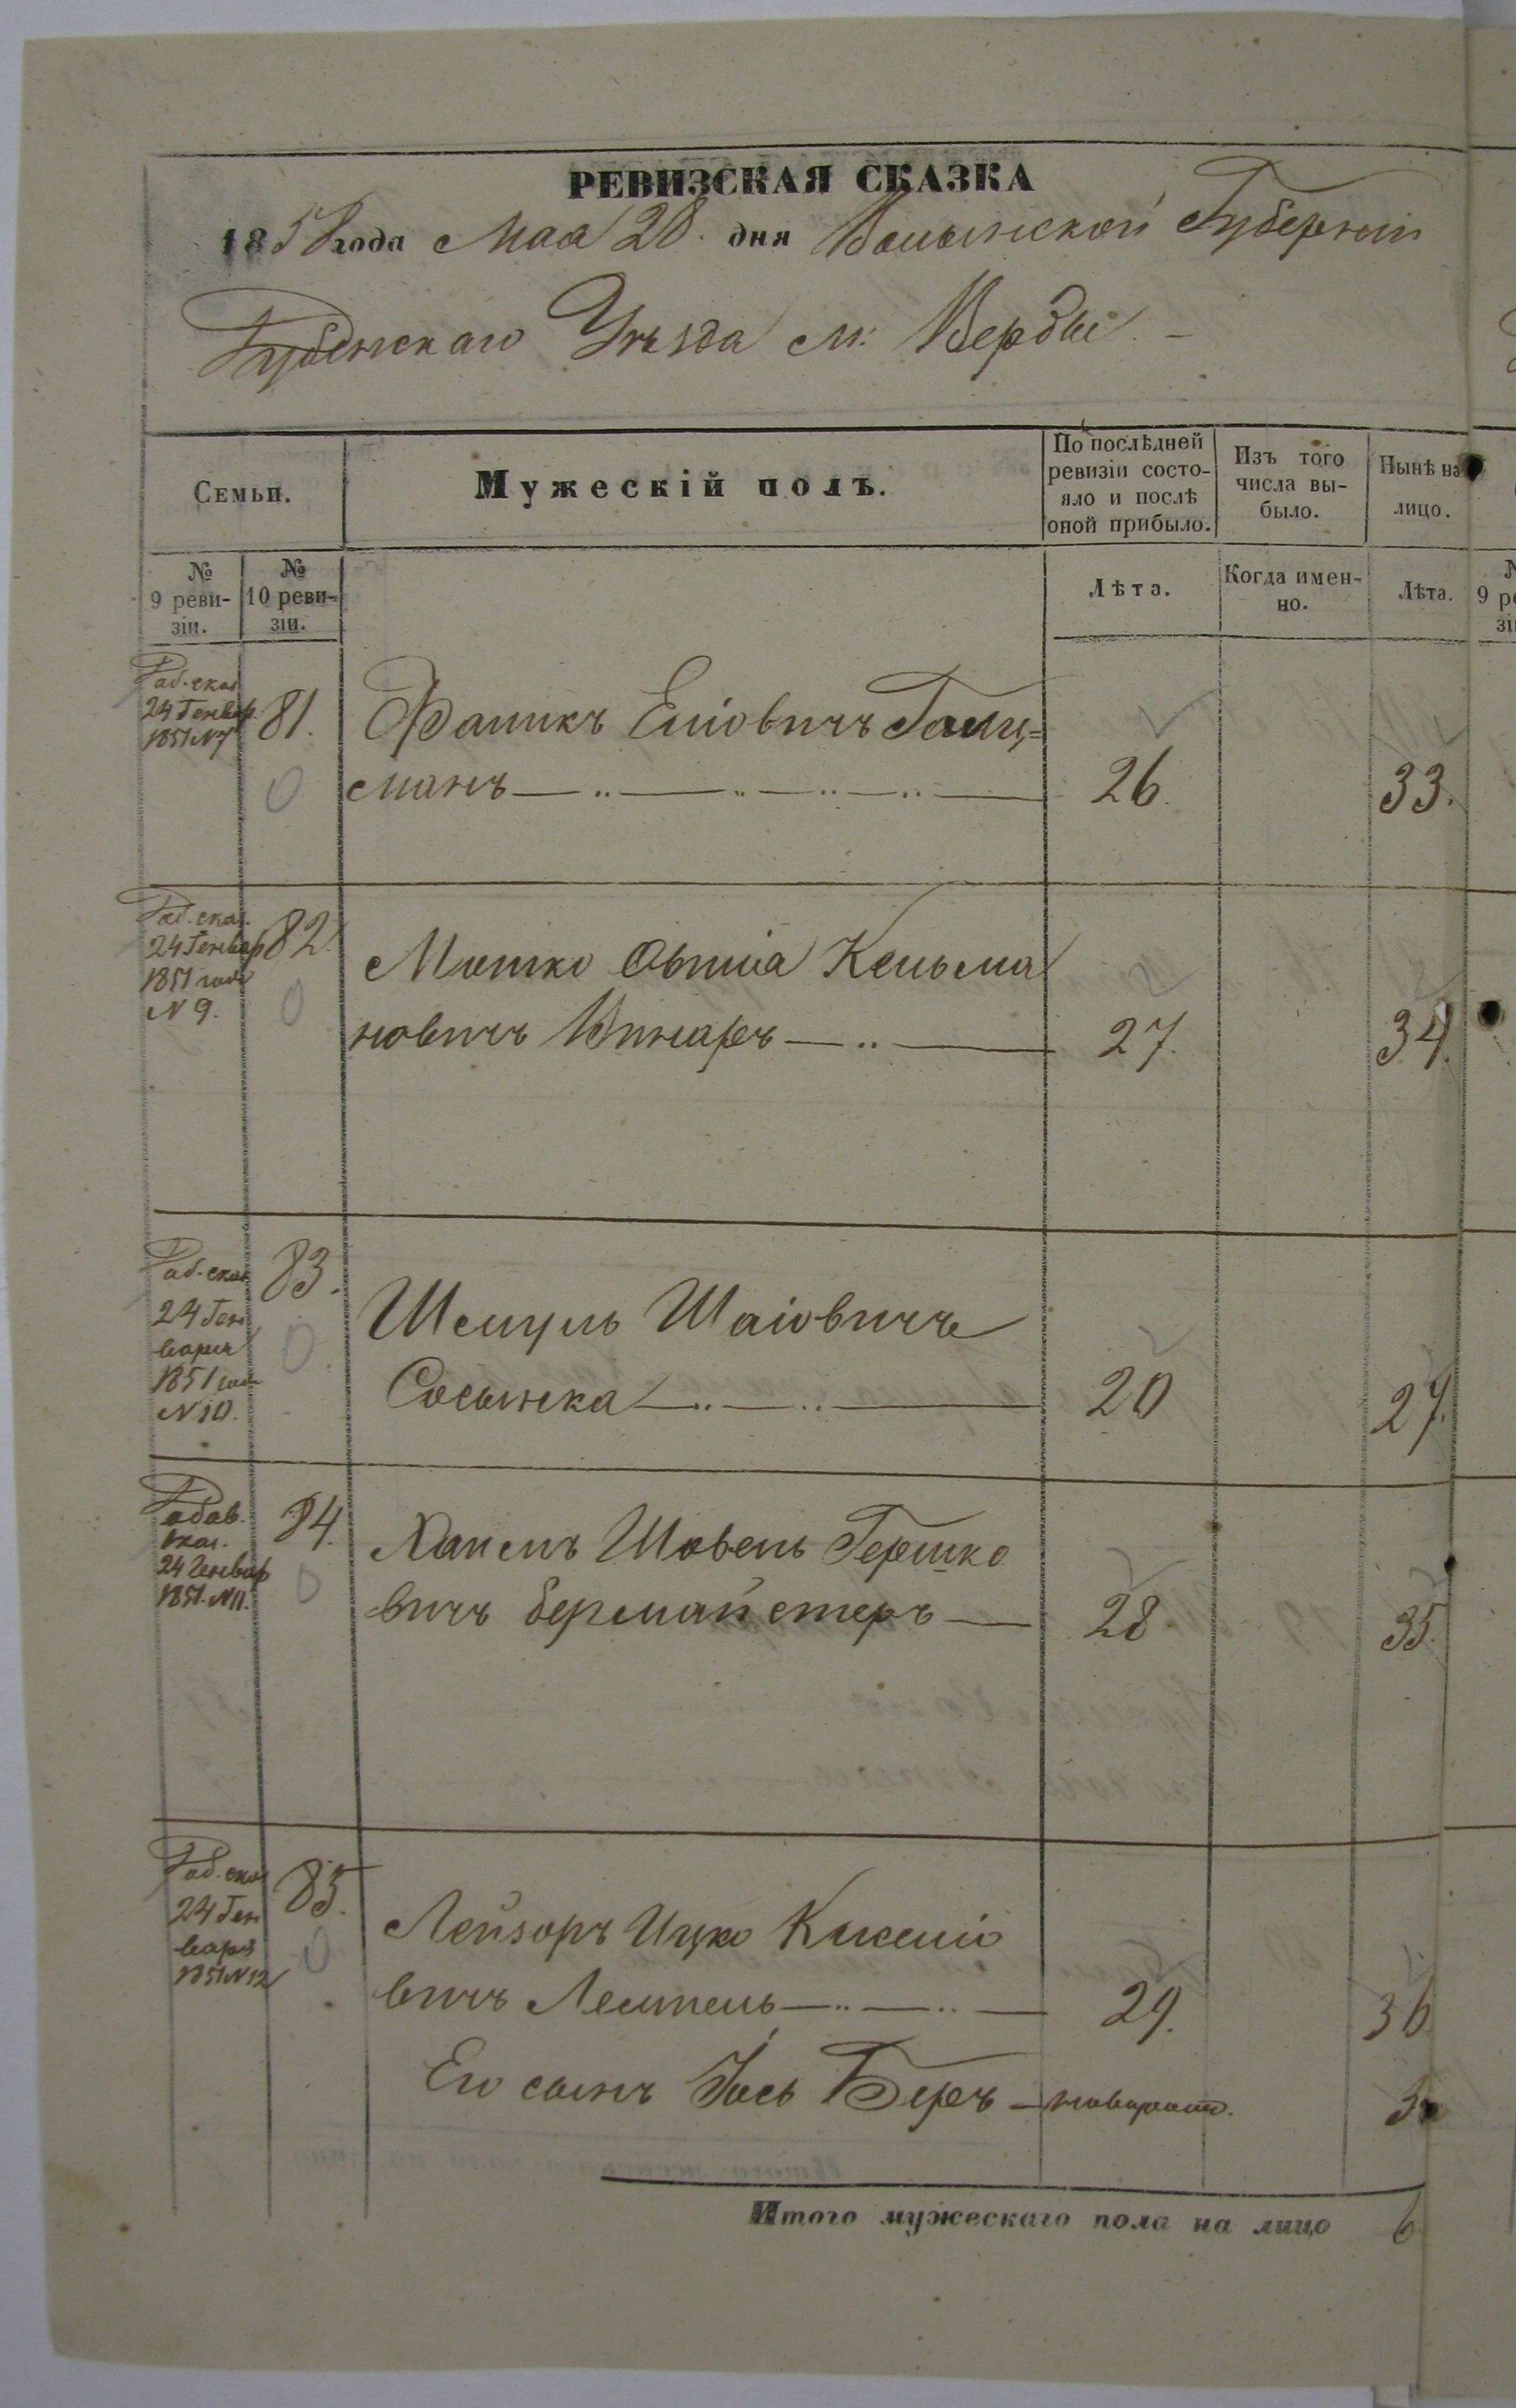 РЕВИЗСКАЯ СКАЗКА
1858 года Мая 28. дня Волынской Губерніи
Дубенскаго Уѣзда м: Вербы. –
Семьи.
Мужескій полъ.
По послѣдней
ревизіи состо-
яло и послѣ
оной прибыло.
Изъ того
числа вы-
было.
Нынѣ на
лицо.
№
9 реви-
зіи.
№
10 реви-
зіи.
Лѣта.
Когда имен-
но.
Лѣта.
Доб. сказ.
24 Генвар.
1851 N 7
81. Фаликъ Еліовичъ Галц=
манъ 26. 33.
Доб. сказ.
24 Генвар
1851 года
N 9.
82. Мошко Овшіа Кельма
новичъ Винаръ 27. 34.
Доб. сказ
24 Ген
варя
1851 года
N 10.
83. Шемуль Шаіовичъ
Сосынка 20 27.
Добав.
сказ.
24 Генвар
1851. N 11.
84. Хаимъ Шовель Гершко
вичъ Бермайстеръ 28 35.
Доб. сказ
24 Ген
варя
1851 N 12
85. Лейзоръ Ицко
вичъ Лемпель 29. 36
Его сынъ Іось Беръ – новорожд. 5
Итого мужескаго пола на лицо 6